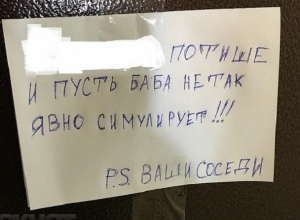 ПОТИШЕ
И ПУСТЬ БАБА НЕ ТАК
ЯВНО СИМУЛИРУЕТ!!!
P.S. ВАШИ СОСЕДИ